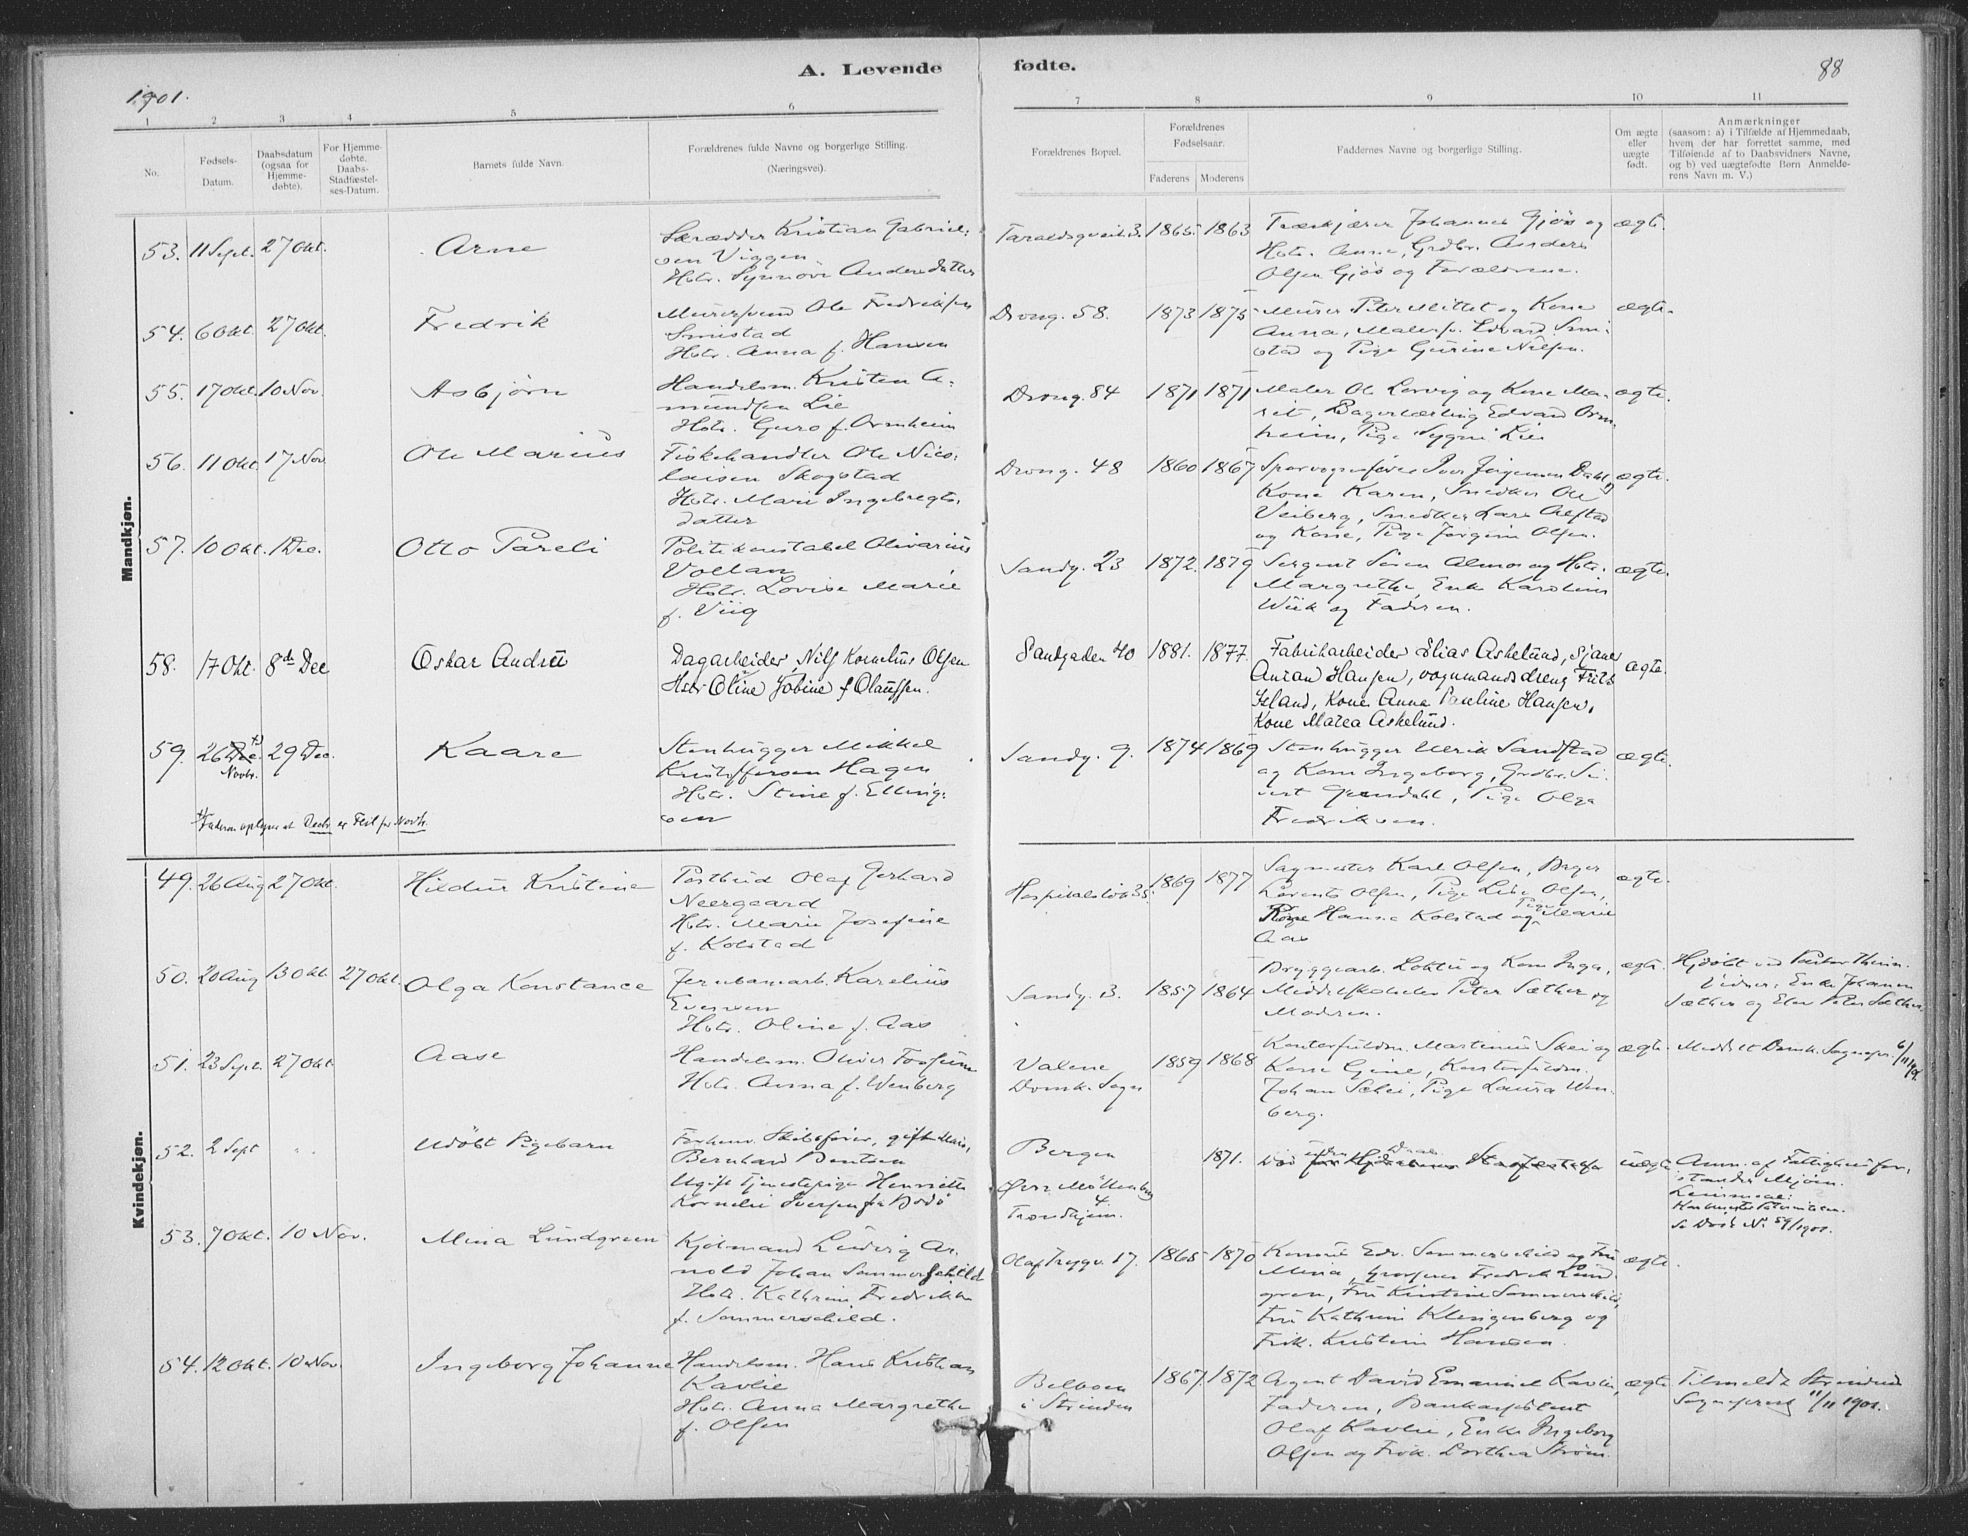 A. Levende fødte.
88
1901.
1 2 3 4 5 6 7 8 9 10 11
No.
Fødsels-
Datum.
Daabsdatum
(ogsaa for
Hjemme-
døbte).
For Hjemme-
døbte.
Daabs-
Stadfæstel-
ses-Datum.
Barnets fulde Navn.
Forældrenes fulde Navne og borgerlige Stilling.
(Næringsvei).
Forældrenes Bopæl.
Forældrenes
Fødselsaar.
Faderens Moderens
Faddernes Navne og borgerlige Stilling.
Om ægte
eller
uægte
født.
Anmærkninger
(saasom: a) i Tilfælde af Hjemmedaab,
hvem der har forrettet samme, med
Tilføiende af to Daabsvidners Navne,
og b) ved uægtefødte Børn Anmelde-
rens Navn m. V.)
Mandkjøn.
53. 11 Sept. 27 Okt. Arne
Skrædder Kristian Gabriel-
sen Viggen
Hstr. Synnøve Andersdatter
1865. 1863
Johannes Gjøs og
Hstr. Anne, Grdbr. Anders
Olsen Gjøs og Forældrene.
ægte.
54. 6 Okt. 27 Okt. Fredrik
Murersvend Ole Fredriksen
Smistad
Hstr. Anna f. Hansen
Drong. 58. 1873 1875
Murer Peter Mittet og Kone
Anna, Malersv. Edvard Smi-
stad og Pige Gurine Nilsen.
ægte.
55. 17 Okt. 10 Nov. Asbjørn
Handelsm. Kristen A-
mundsen Lie
Hstr. Guro f. Ormheim
Drong. 84 1871 1871
Maler Ole Lervig og Kone Ma-
rit, Bagerlærling Edvard Orm-
heim, Pige Sygni Lie
ægte.
56. 11 Okt. 17 Nov. Ole Marius
Fiskehandler Ole Nico-
laisen Skogstad
Hstr. Marie Ingebregts-
datter
Drong. 48 1860 1867
Sporvognsfører Iver Jørgensen Dahl,
Kone Karen, Snedker Ole
Veiberg, Snedker Lars Alstad
og Kone, Pige Jørgine Olsen.
ægte.
57. 10 Okt. 1 Dec. Otto Pareli
Politikonstabel Olivarius
Vollan
Hstr. Lovise Marie
f. Viig
Sandg. 23 1872. 1879
Sergent Søren Almos og Hstr.
Margrethe, Enke Karoline
Wiik og Faderen.
ægte.
58. 17 Okt. 8de Dec Oskar Andreü
Dagarbeider Nils Kornelius Olsen
Hstr Oline Jobine f Olaussen.
Sandgaden 40 1881. 1877.
Fabrikarbeider Elias Askelund, Sjaner
Antan Hansen, vognmandsdreng Frits
Island, Kone Anna Pauline Hansen,
Kone Matea Askelund.
ægte.
59. 26 Dec. *) Novbr. 29 Dec. Kaare
Stenhugger Mikkel
Kristoffersen Hagen
Hstr. Stine f. Elling-
sen
Sandg. 9. 1874 1869
Stenhugger Ulrik Sandstad
og Kone Ingeborg, Grdbr. Si-
vert Grendahl, Pige Olga
Fredriksen.
ægte.
*) Faderen oplyser at Decbr er Feil for Novbr.
Kvindekjøn.
49. 26 Aug 27 Okt. Hildur Kristine
Postbud Olaf Gerhard
Neergaard
Hstr. Marie Josefine
f. Kolstad
1869 1877
Sagmester Karl Olsen, Bager
Lorents Olsen, Pige Lise Olsen,
Hanna Kolstad og Pige Marie
Aas
ægte.
50. 20 Aug 13 Okt. 27 Okt. Olga Konstance
Jernbanearb. Karelius
Evensen
Hstr. Oline f. Aas
Sandg. 3. 1857 1864
Bryggearb. Loktu og Kone Inga,
Middelskoleelev Peter Sæther og
Moderen.
ægte.
Hjdøbt ved Pastor
Vidner: Enke Johanna
Sæther og Elev Peter Sæther.
51. 23 Sept. 27 Okt. Aase
Handelsm. Oliver Fossum
Hstr. Anna f. Wenberg
Domk. Sogn
1859 1868
Kontorfuldm. Martinus Skei og
Kone Gine, Kontorfuldm.
Johan Schei, Pige Laura Wen-
berg.
ægte.
Meddelt Domk. Sognepr. 6/11 1901.
52. 2 Sept Udøbt Pigebarn
Forhenv. Skibsfører, gift Mand,
Bernhard Bentsen
Ugift Tjenestepige Henriette
Kornelie Iversen fra Bodø
Bergen
Øvre Møllenberg
4.
Trondhjem.
1871.
Død uden Daab
uægte
Anm. af Fattigheds for-
stander Mjøen.
Se Døde No 59/1901.
53. 7 Okt. 10 Nov. Mina Lundgreen
Kjøbmand Ludvig Ar-
nold Johan Sommerschild
Hstr. Kathrine Fredrikke
f. Sommerschild.
Olaf Trygv. 17. 1865 1870
Konsul Edv. Sommerschild og Fru
Mina, Grosserer Fredrik Lund-
gren, Fru Kirstine Sommerschild,
Fru Kathrine Klingenberg og
Frk. Kristine Hansen.
ægte.
54. 12 Okt. 10 Nov. Ingeborg Johanne
Handelsm. Hans Kristian
Kavlie
Hstr. Anna Margrethe
f. Olsen
i Strinden
1867. 1872
Agent David Emanuel Kavlie,
Faderen, Bankassistent
Olaf Kavlie, Enke Ingeborg
Olsen og Frøk. Dorthea Strøm.
ægte
Tilmeldt Strinden
Sogneprest 11/11 1901.